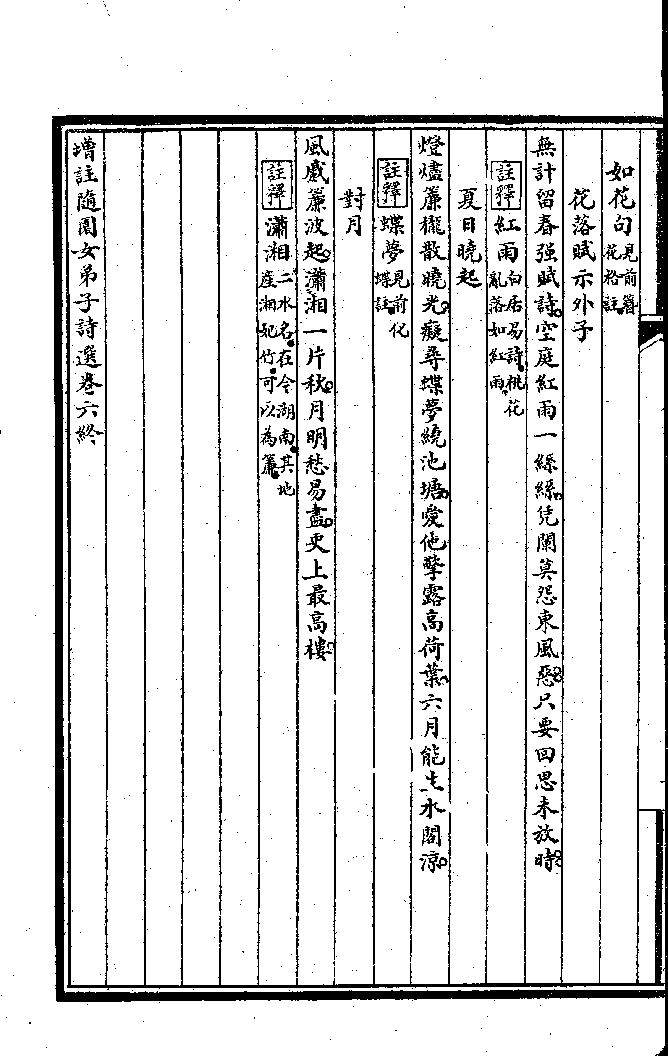 如花句見前簪花格註
花落賦示外子
無計留春强賦詩空庭紅雨一絲絲凭闌莫怨東風惡只要回思未放時
註釋紅雨白居易詩桃花亂落如紅雨
夏日曉起
燈燼簾櫳散曉光癡尋蝶夢繞池塘愛他擎露高荷葉六月能生水閣涼
註釋蝶夢見前化蝶註
對月
風戲簾波起瀟湘一片秋月明愁易盡更上最高樓
註釋瀟湘二水名在今湖南其地產湘妃竹可以為簾
增註隨園女弟子詩選卷六終